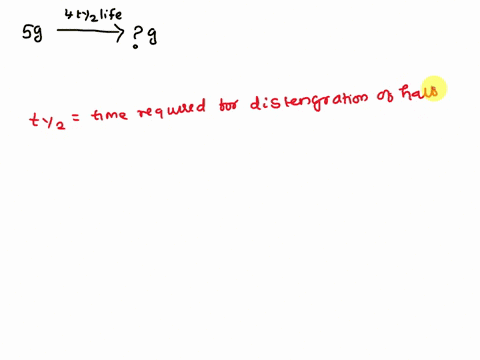 4 t½ life
5g ⟶ ? g
t½ = time required for distengration of half